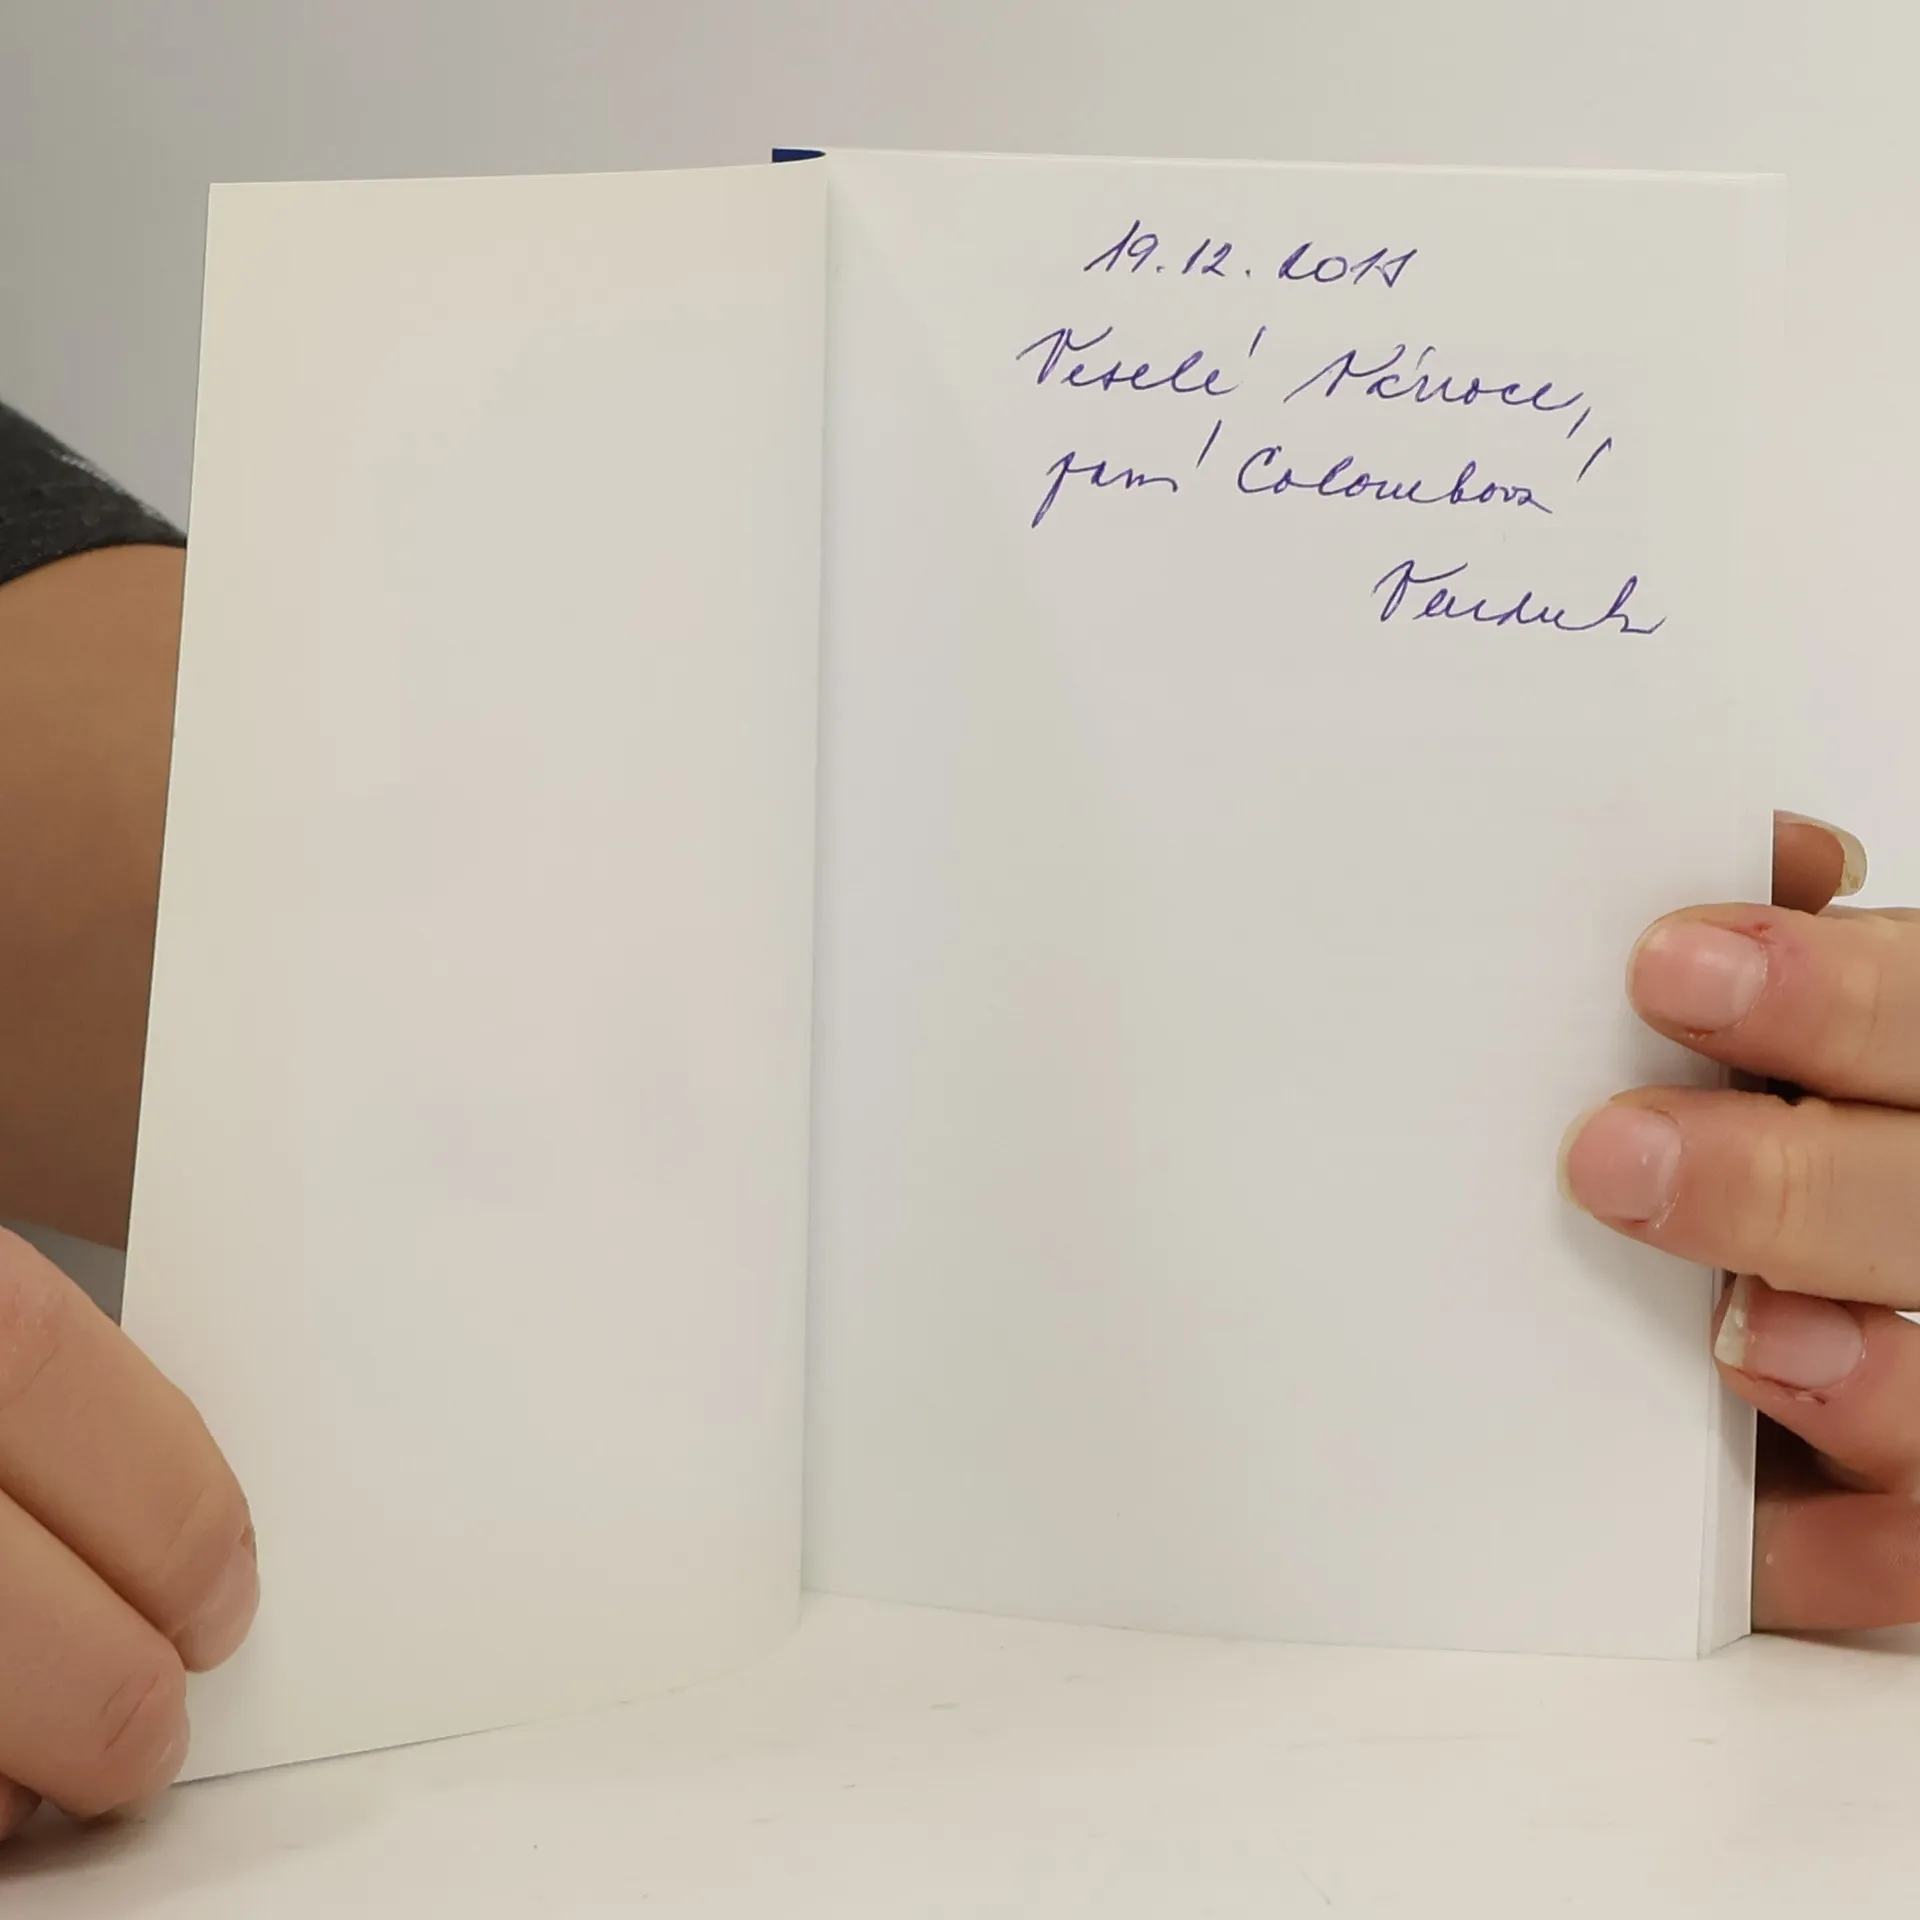 19.12.2011
Veselé Vánoce,
paní Colombová